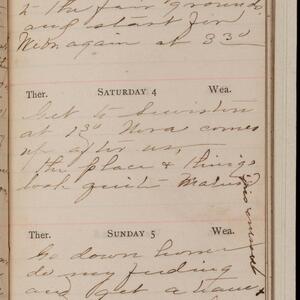 2 the fair grounds
and start for
again at 330
Ther. SATURDAY 4 Wea.
Get to Lewiston
at 130 Nora comes
up after us,
the place & things
look quite
Ther. SUNDAY 5 Wea.
Go down home
do my feeding
and get a